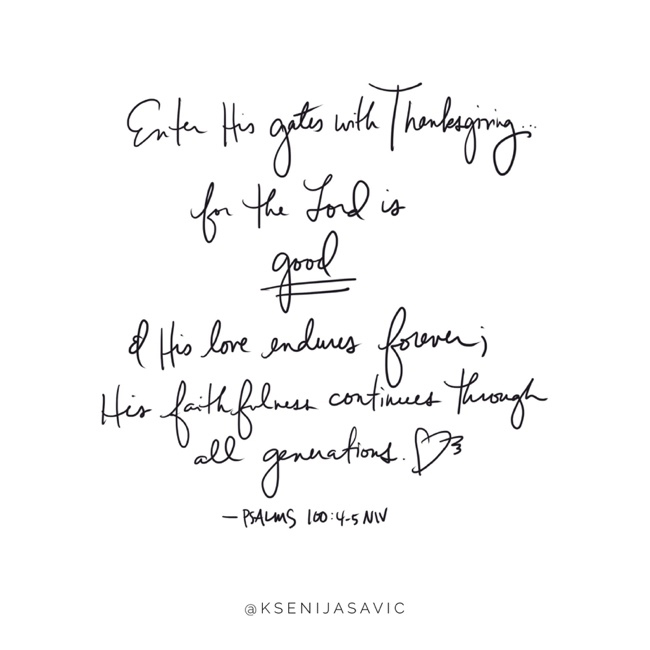 Enter His gates with Thanksgiving...
for the Lord is
good
& His love endures forever;
His faithfulness continues through
all generations.
—PSALMS 100:4-5 NIV
@KSENIJASAVIC